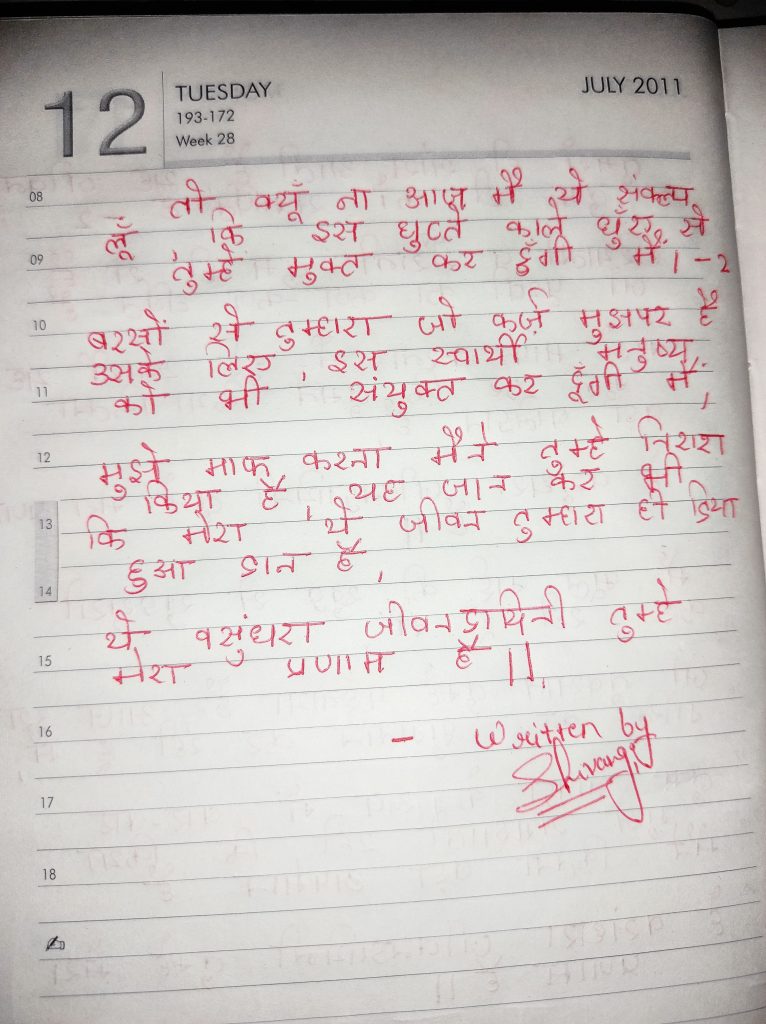 12
TUESDAY
193-172
Week 28
JULY 2011
08
तो क्यूँ ना आज मैं ये संकल्प
लूँ , कि इस घुटते काले धुँए से
09
तुम्हे मुक्त कर दूँगी मैं । -2
10
बरसों से तुम्हारा जो कर्ज़ मुझपर है
उसके लिए , इस स्वार्थी मनुष्य
11
को भी संयुक्त कर दूँगी मैं ,
12
मुझे माफ करना मैंने तुम्हे निराश
किया है , यह जान कर भी
13
कि मेरा ये जीवन तुम्हारा ही दिया
हुआ दान है ,
14
ये वसुंधरा जीवनदायिनी तुम्हे
15
मेरा प्रणाम है ||.
16
- written by
Shivangi
17
18